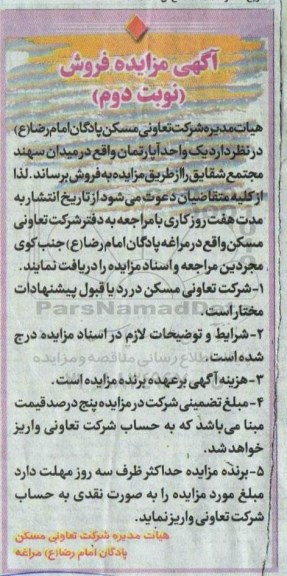 آگهی مزایده فروش
(نوبت دوم)
هیات مدیره شرکت تعاونی مسکن پادگان امام رضا(ع)
در نظر دارد یک واحد آپارتمان واقع در میدان سهند
مجتمع شقایق را از طریق مزایده به فروش برساند. لذا
از کلیه متقاضیان دعوت می شود از تاریخ انتشار به
مدت هفت روز کاری با مراجعه به دفتر شرکت تعاونی
مسکن واقع در مراغه پادگان امام رضا(ع) جنب کوی
مجردین مراجعه و اسناد مزایده را دریافت نمایند.
۱-شرکت تعاونی مسکن در رد یا قبول پیشنهادات
مختار است.
ParsNamadData
۲-شرایط و توضیحات لازم در اسناد مزایده درج
شده است.
اطلاع رسانی مناقصه و مزایده
۳-هزینه آگهی بر عهده برنده مزایده است.
۴-مبلغ تضمینی شرکت در مزایده پنج درصد قیمت
مبنا می باشد که به حساب شرکت تعاونی واریز
خواهد شد.
۵-برنده مزایده حداکثر ظرف سه روز مهلت دارد
مبلغ مورد مزایده را به صورت نقدی به حساب
شرکت تعاونی واریز نماید.
هیات مدیره شرکت تعاونی مسکن
پادگان امام رضا(ع) مراغه